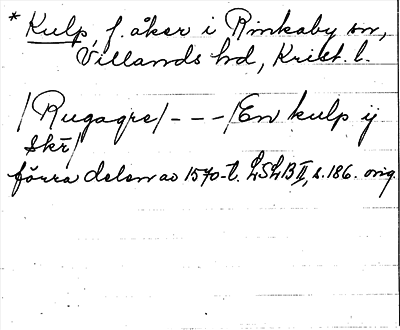 * Kulp, f. åker i Rinkaby sn,
Villands hd, Krist. l.
/Rugagre/ - - - /En kulp ij
Skr/
förra delen av 1570-t. LSLB II, s. 186. orig.